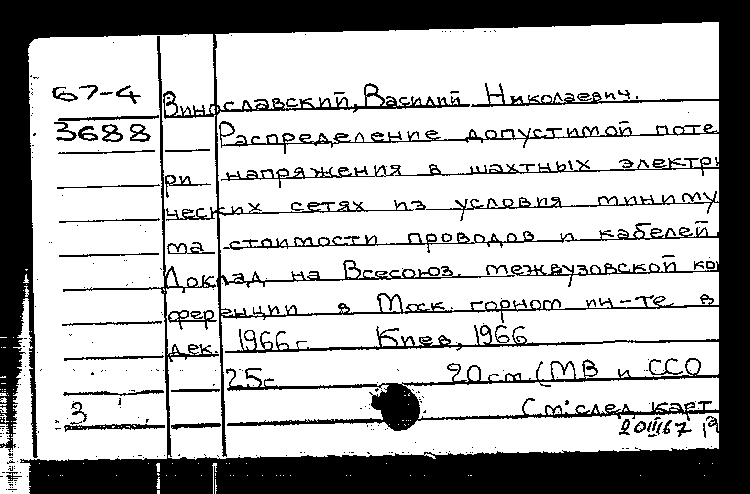 67-4 Винославский, Василий Николаевич.
3688 Распределение допустимой поте
ри напряжения в шахтных электри
ческих сетях из условия миниму
ма стоимости проводов и кабелей.
Доклад на Всесоюз. межвузовской кон
ференции в Моск. горном ин-те в
дек. 1966 г. Киев, 1966
25 с. 20 см. (МВ и ССО
3 См. след. карт
20III67